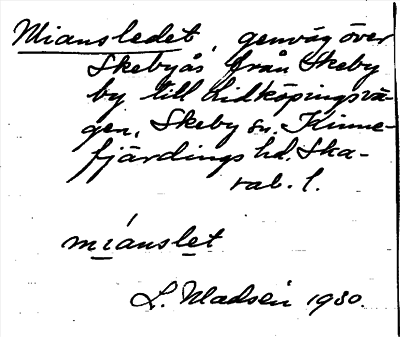 Miansledet, genväg över
Skebyås från Skeby
by till Lidköpingsvä-
gen, Skeby sn. Kinne-
fjärdings hd. Ska-
rab. l.
míanslet
L. Madsén 1930.